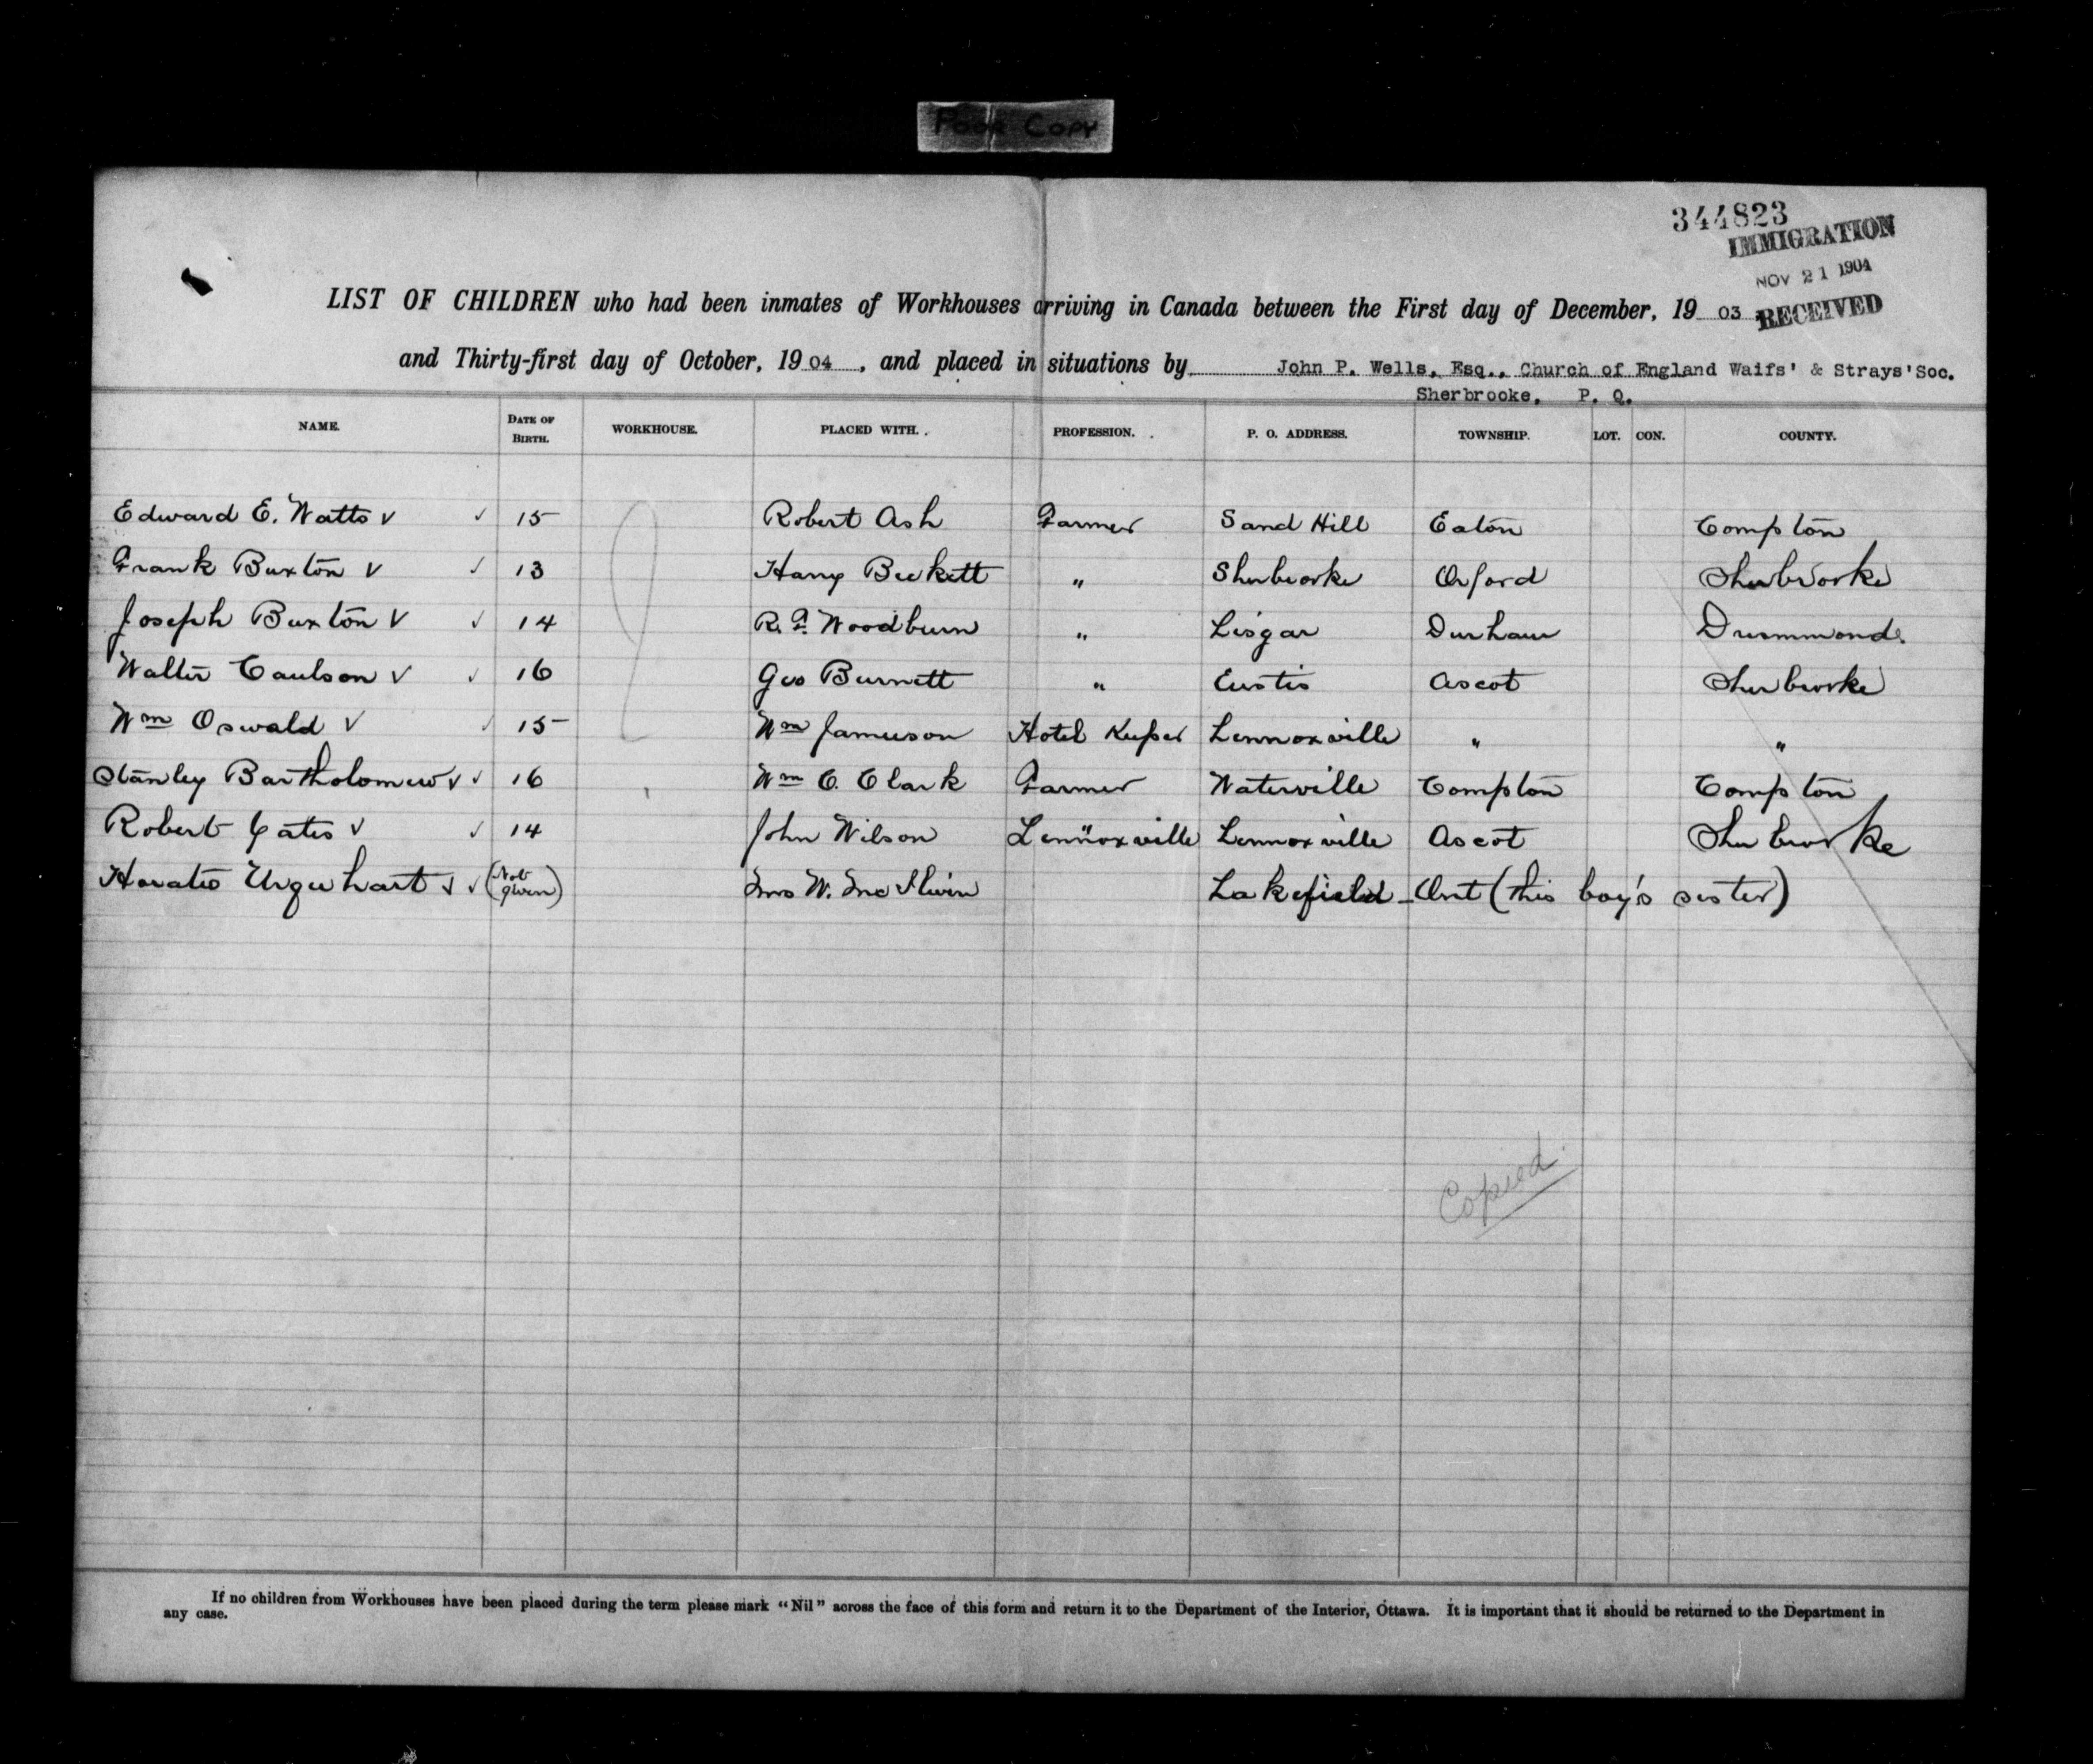 Poor Copy
344823
IMMIGRATION
NOV 21 1904
RECEIVED
LIST OF CHILDREN who had been inmates of Workhouses arriving in Canada between the First day of December, 19 03
and Thirty-first day of October, 19 04, and placed in situations by John P. Wells, Esq., Church of England Waifs' & Strays' Soc.
Sherbrooke, P. Q.
NAME. DATE OF BIRTH. WORKHOUSE. PLACED WITH. PROFESSION. P. O. ADDRESS. TOWNSHIP. LOT. CON. COUNTY.
Edward E. Watts v ✓ 15 Robert Ash Farmer Sand Hill Eaton Compton
Frank Buxton v ✓ 13 Harry Beckett " Sherbrooke Orford Sherbrooke
Joseph Buxton v ✓ 14 R. F. Woodburn " Lisgar Durham Drummond.
Walter Caulson v ✓ 16 Geo Burnett " Eustis Ascot Sherbrooke
Wm Oswald v ✓ 15 Wm Jamieson Hotel Keeper Lennoxville " "
Stanley Bartholomew v ✓ 16 Wm C. Clark Farmer Waterville Compton Compton
Robert Yates v ✓ 14 John Wilson Lennoxville Lennoxville Ascot Sherbrooke
Horatio Urquhart v ✓ (Not given) W. Lakefield - Ont (this boy's sister)
Copied.
If no children from Workhouses have been placed during the term please mark "Nil" across the face of this form and return it to the Department of the Interior, Ottawa. It is important that it should be returned to the Department in
any case.